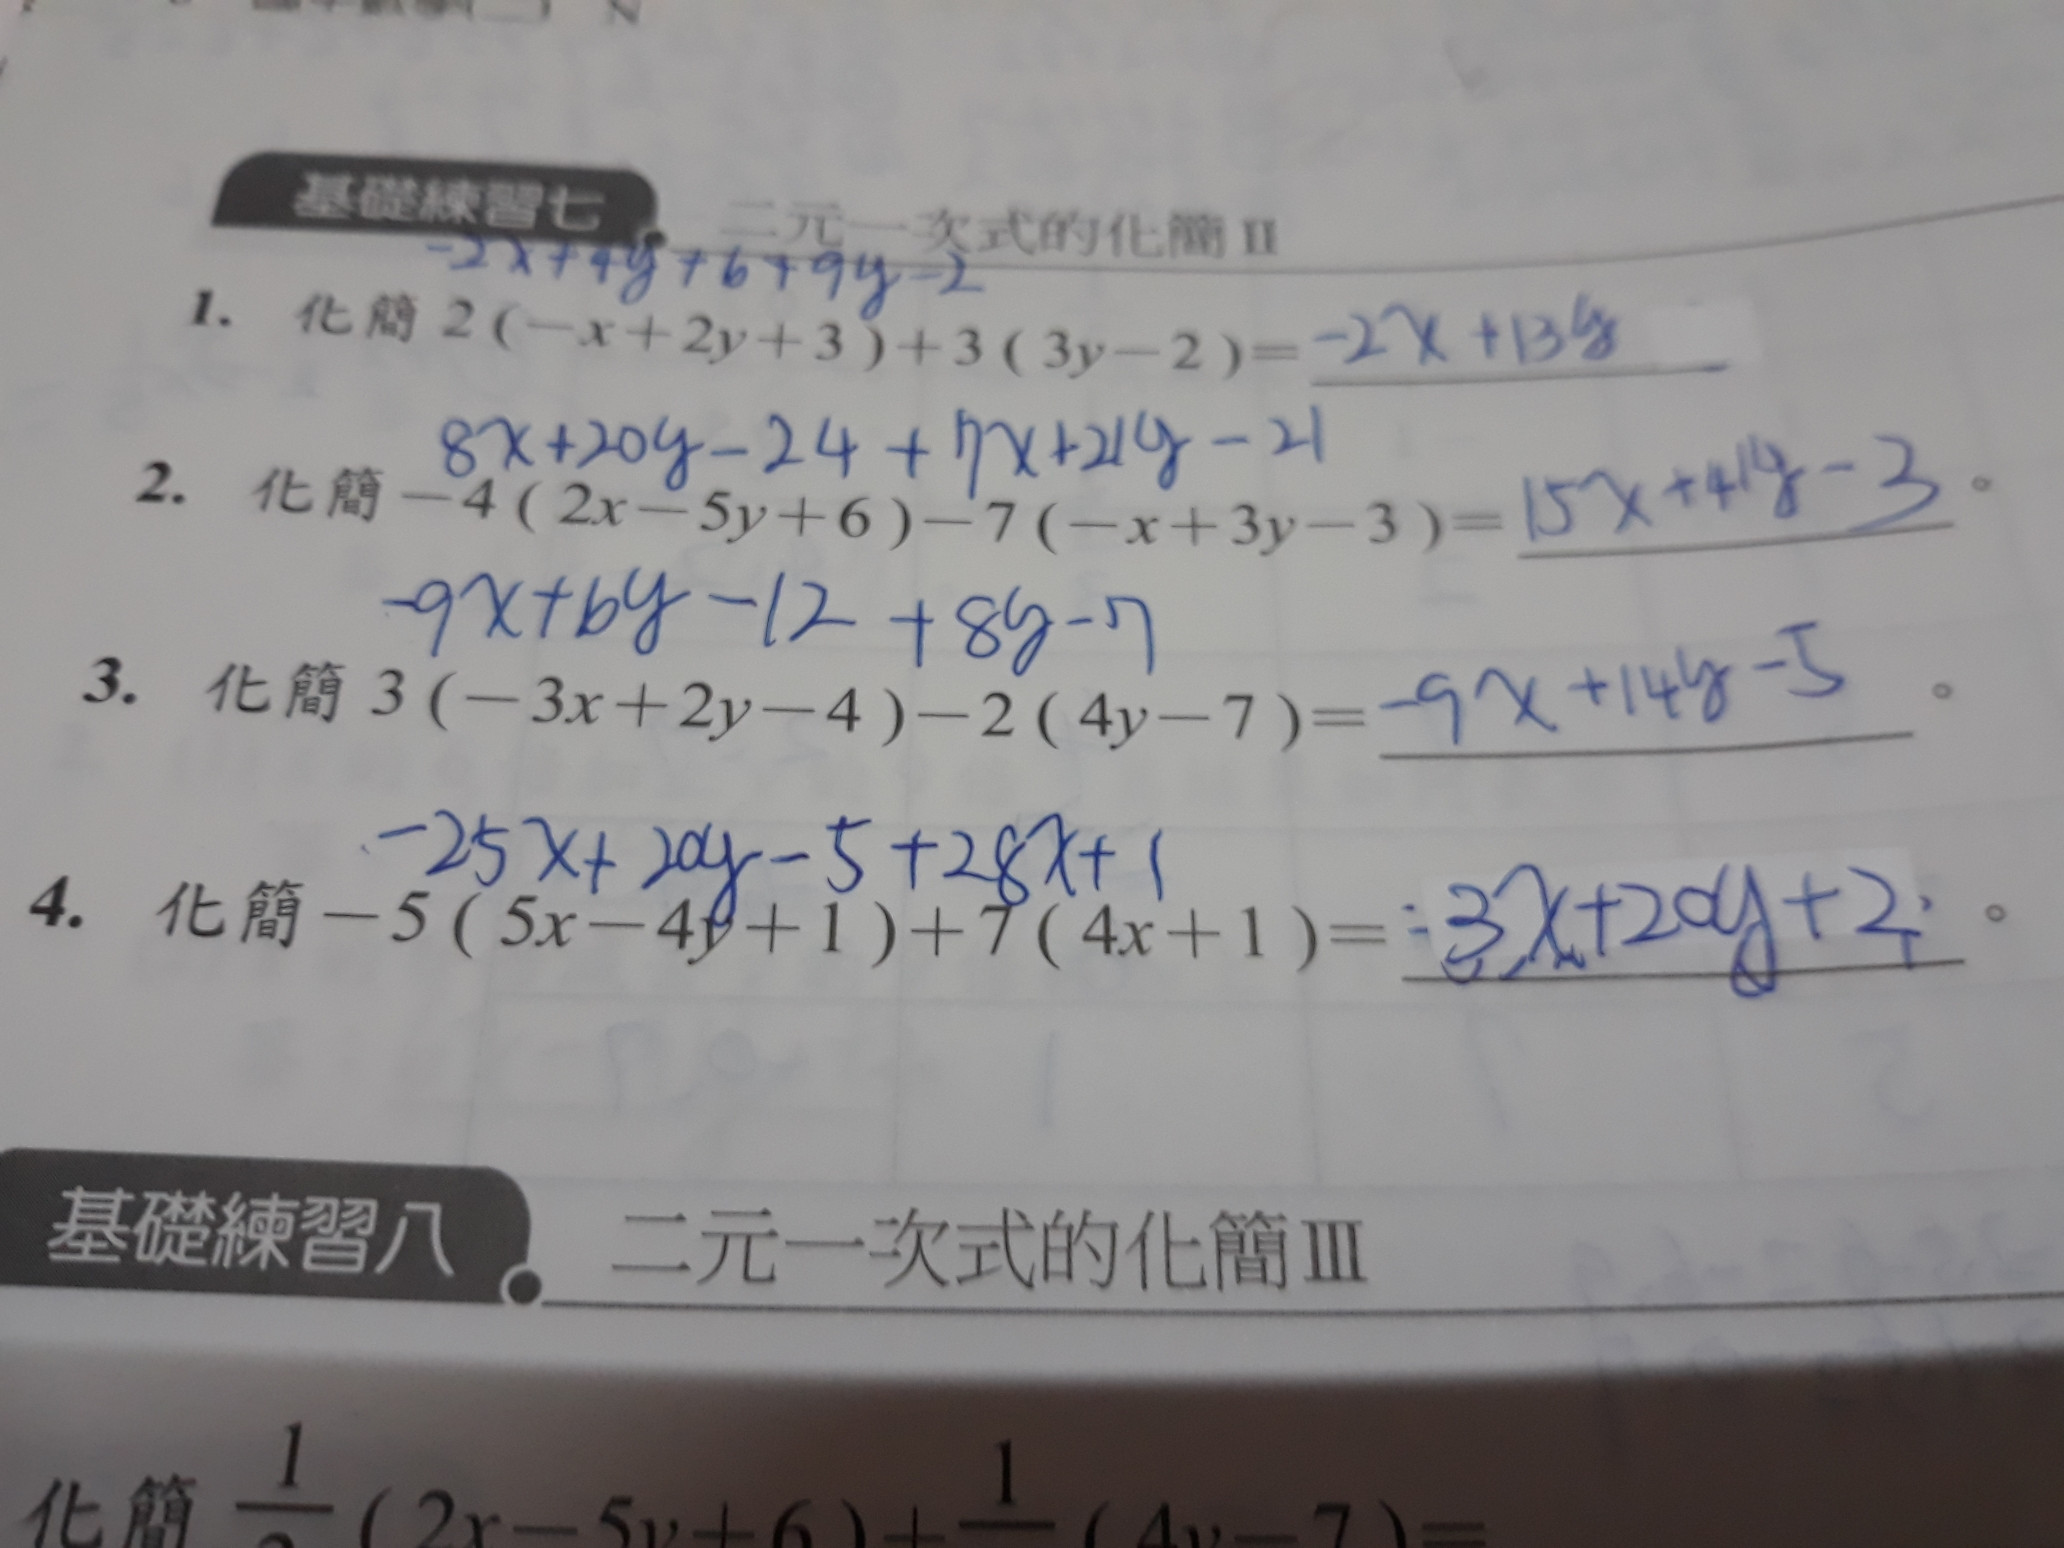 基礎練習七 二元一次式的化簡II
-2x+4y+6+9y-2
1. 化簡2(-x+2y+3)+3(3y-2)=-2x+13y
8x+20y-24+7x+21y-21
2. 化簡-4(2x-5y+6)-7(-x+3y-3)=15x+41y-3。
-9x+6y-12+8y-7
3. 化簡3(-3x+2y-4)-2(4y-7)=-9x+14y-5。
-25x+20y-5+28x+1
4. 化簡-5(5x-4y+1)+7(4x+1)=3x+20y+2。
基礎練習八 二元一次式的化簡III
化簡 1 (2x-5y+6)+ 1 (4y-7)=